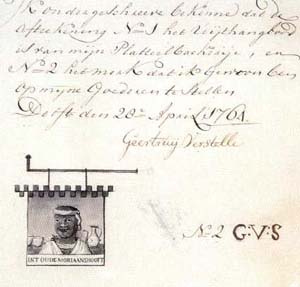 Ik ondergeschreeve bekenne dat de
afteekening N:o 1 het Uijthangbord
is van mijn Plateelbackerije, en
N:o 2 het merk dat ik gewoon ben
op mijne Goederen te Stellen
Delft den 20.e April 1764.
Geertruij Verstelle
INT OUDE MORIAANSHOOFT
N:o 2 G:V:S